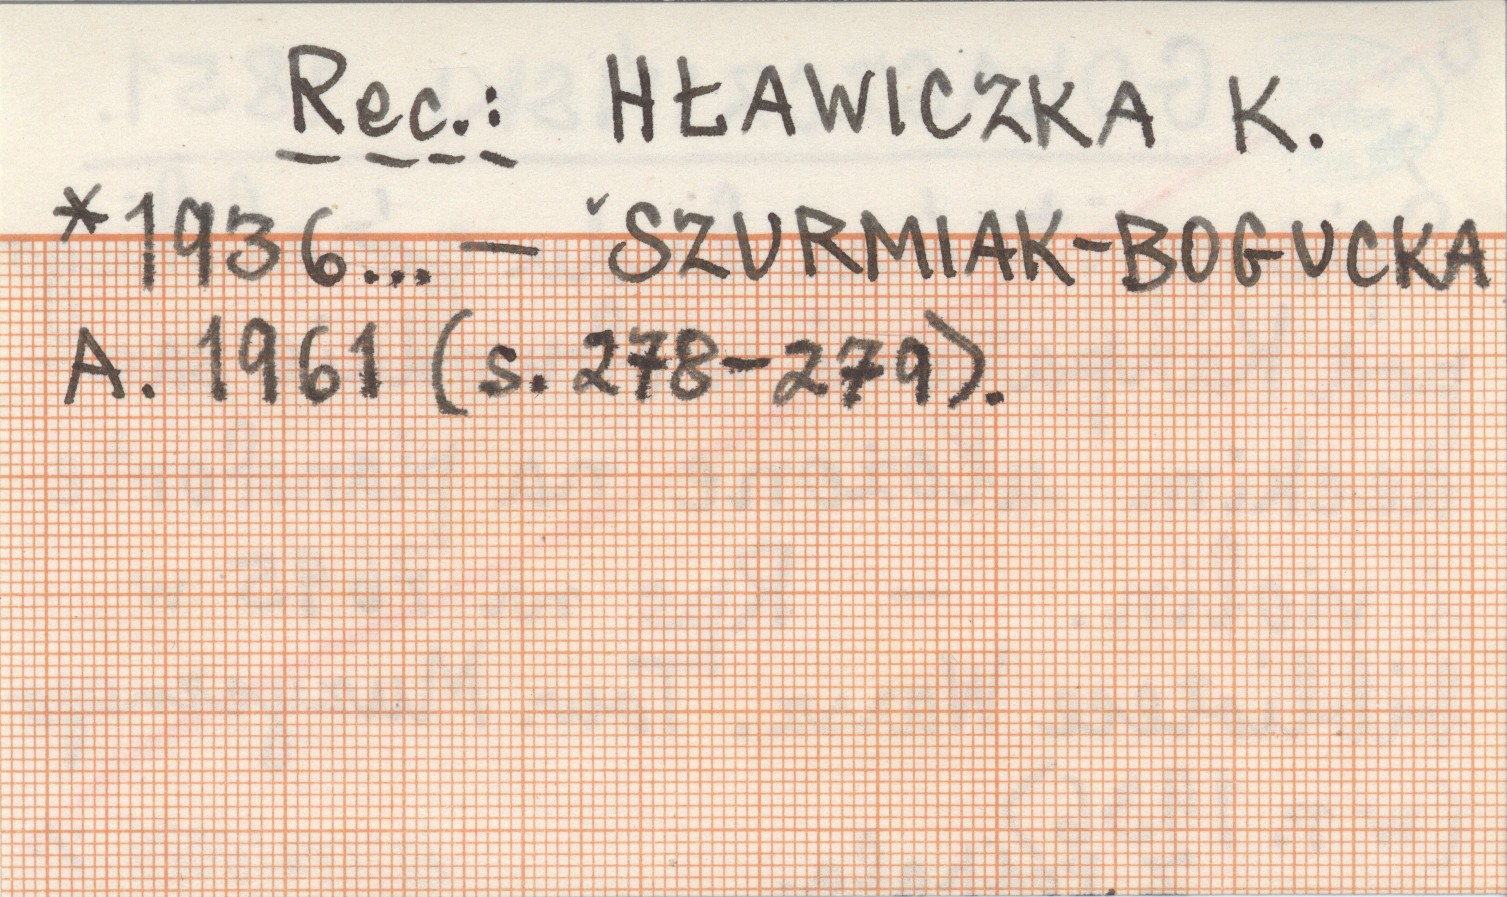 Rec.: HŁAWICZKA K.
*1936... – ˇSZURMIAK-BOGUCKA
A. 1961 (s. 278-279).